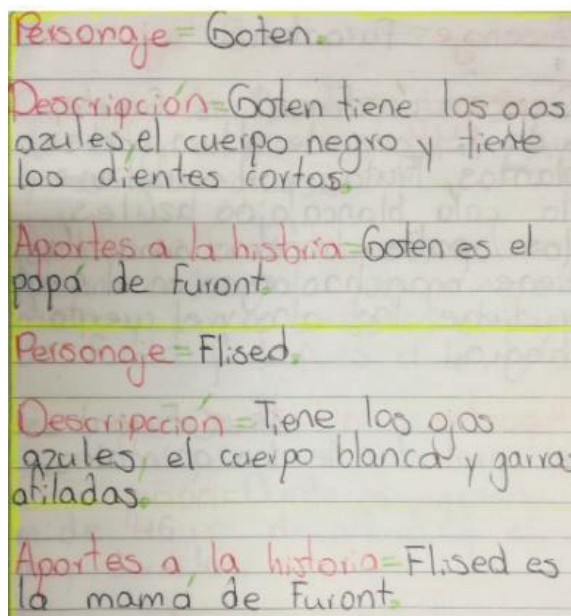 Personaje = Goten.
Descripción = Goten tiene los ojos
azules, el cuerpo negro y tiene
los dientes cortos.
Aportes a la historia = Goten es el
papá de Furont.
Personaje = Flised.
Descripcción = Tiene los ojos
azules, el cuerpo blanco y garras
afiladas.
Aportes a la historia = Flised es
la mamá de Furont.